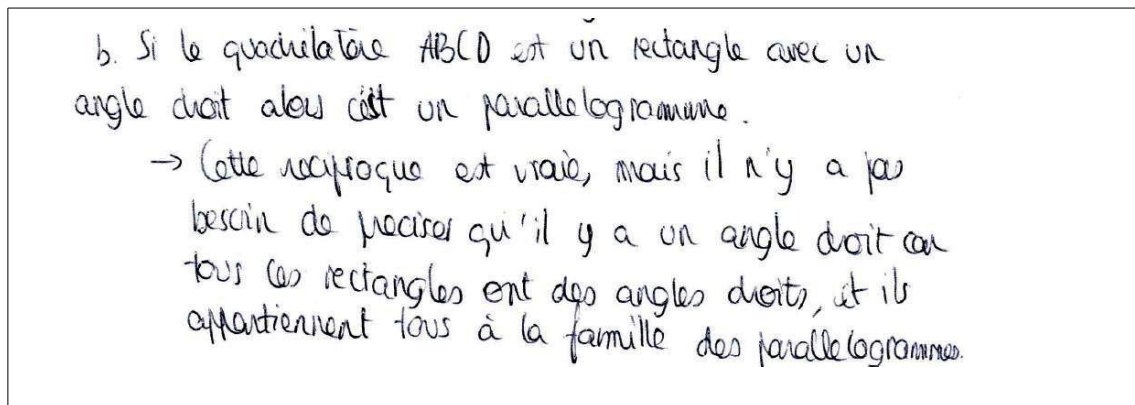 b. Si le quadrilatère ABCD est un rectangle avec un
angle droit alors c'est un parallelogramme.
→ Cette reciproque est vraie, mais il n'y a pas
besoin de preciser qu'il y a un angle droit car
tous les rectangles ont des angles droits, et ils
appartiennent tous à la famille des parallelogrammes.